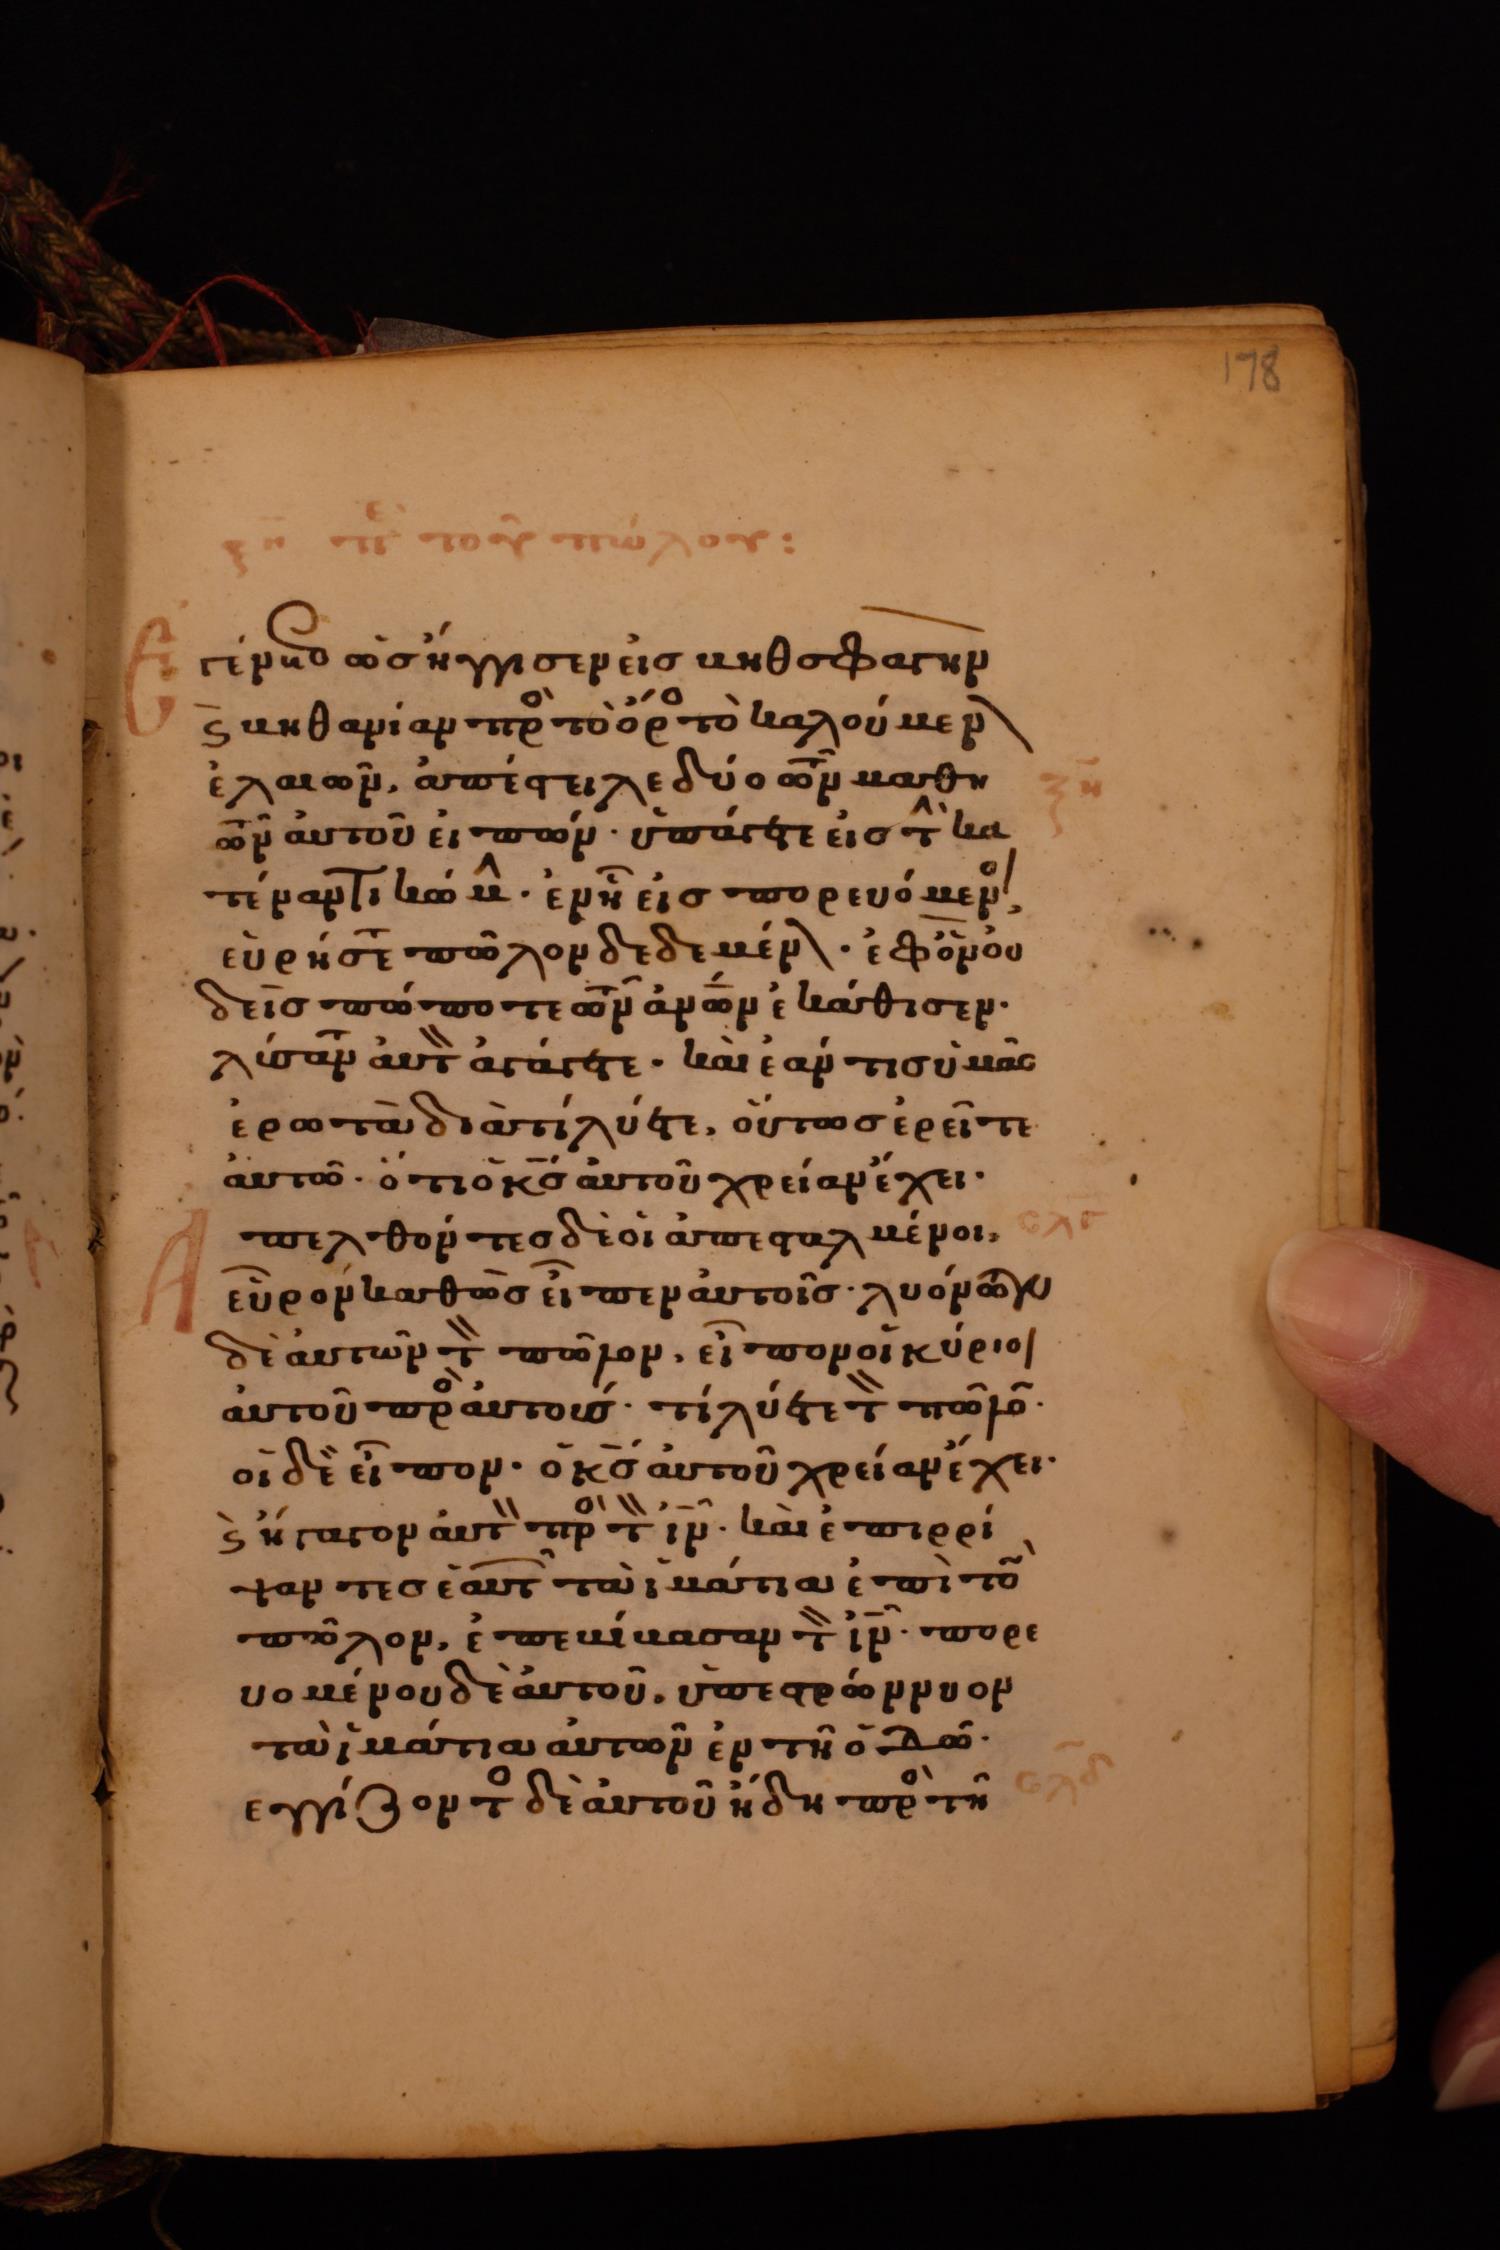 178
ξη περὶ τοῦ πώλου:
Ἐγένετο ὡς ἤγγισεν εἰς βηθσφαγὴν
ϛ βηθανίαν πρὸς τὸ ὄρος τὸ καλούμεν
ἐλαιῶν, ἀπέστειλε δύο τῶν μαθη
τῶν αὐτοῦ εἰπών· ὑπάγετε εἰς τὴν κα
τέναντι κώμην· ἐν ἧ εἰσπορευόμενοι,
εὑρήσετε πῶλον δεδεμέν· ἐφ ὃν οὐ
δεὶς πώποτε τῶν ἀνων ἐκάθισεν·
λύσαντες αὐτὸν ἀγάγετε· καὶ ἐάν τις ὑμᾶς
ἐρωτᾶ διὰ τί λύετε, οὕτως ἐρεῖτε
αὐτῶ· ὅτι ὁ κς αὐτοῦ χρείαν ἔχει·
Ἀπελθόντες δὲ οἱ ἀπεσταλμένοι,
σλγ
εὗρον καθὼς εἶπεν αὐτοῖς· λυόντων
δὲ αὐτῶν τὸν πῶλον, εἶπον οἱ κύριοι
αὐτοῦ πρὸς αὐτούς· τί λύετε τὸν πῶλον·
οἱ δὲ εἶπον· ὁ κς αὐτοῦ χρείαν ἔχει·
ϛ ἤγαγον αὐτὸν πρὸς τὸν ιν· καὶ ἐπιρρί
ψαντες ἑαυτῶν τὰ ἱμάτια ἐπὶ τὸν
πῶλον, ἐπεβίβασαν τὸν ιν· πορε
υομένου δὲ αὐτοῦ, ὑπεστρώννυον
τὰ ἱμάτια αὐτῶν ἐν τῆ ὁδῶ·
εγγίζοντος δὲ αὐτοῦ ἤδη πρὸς τῆ
σλδ